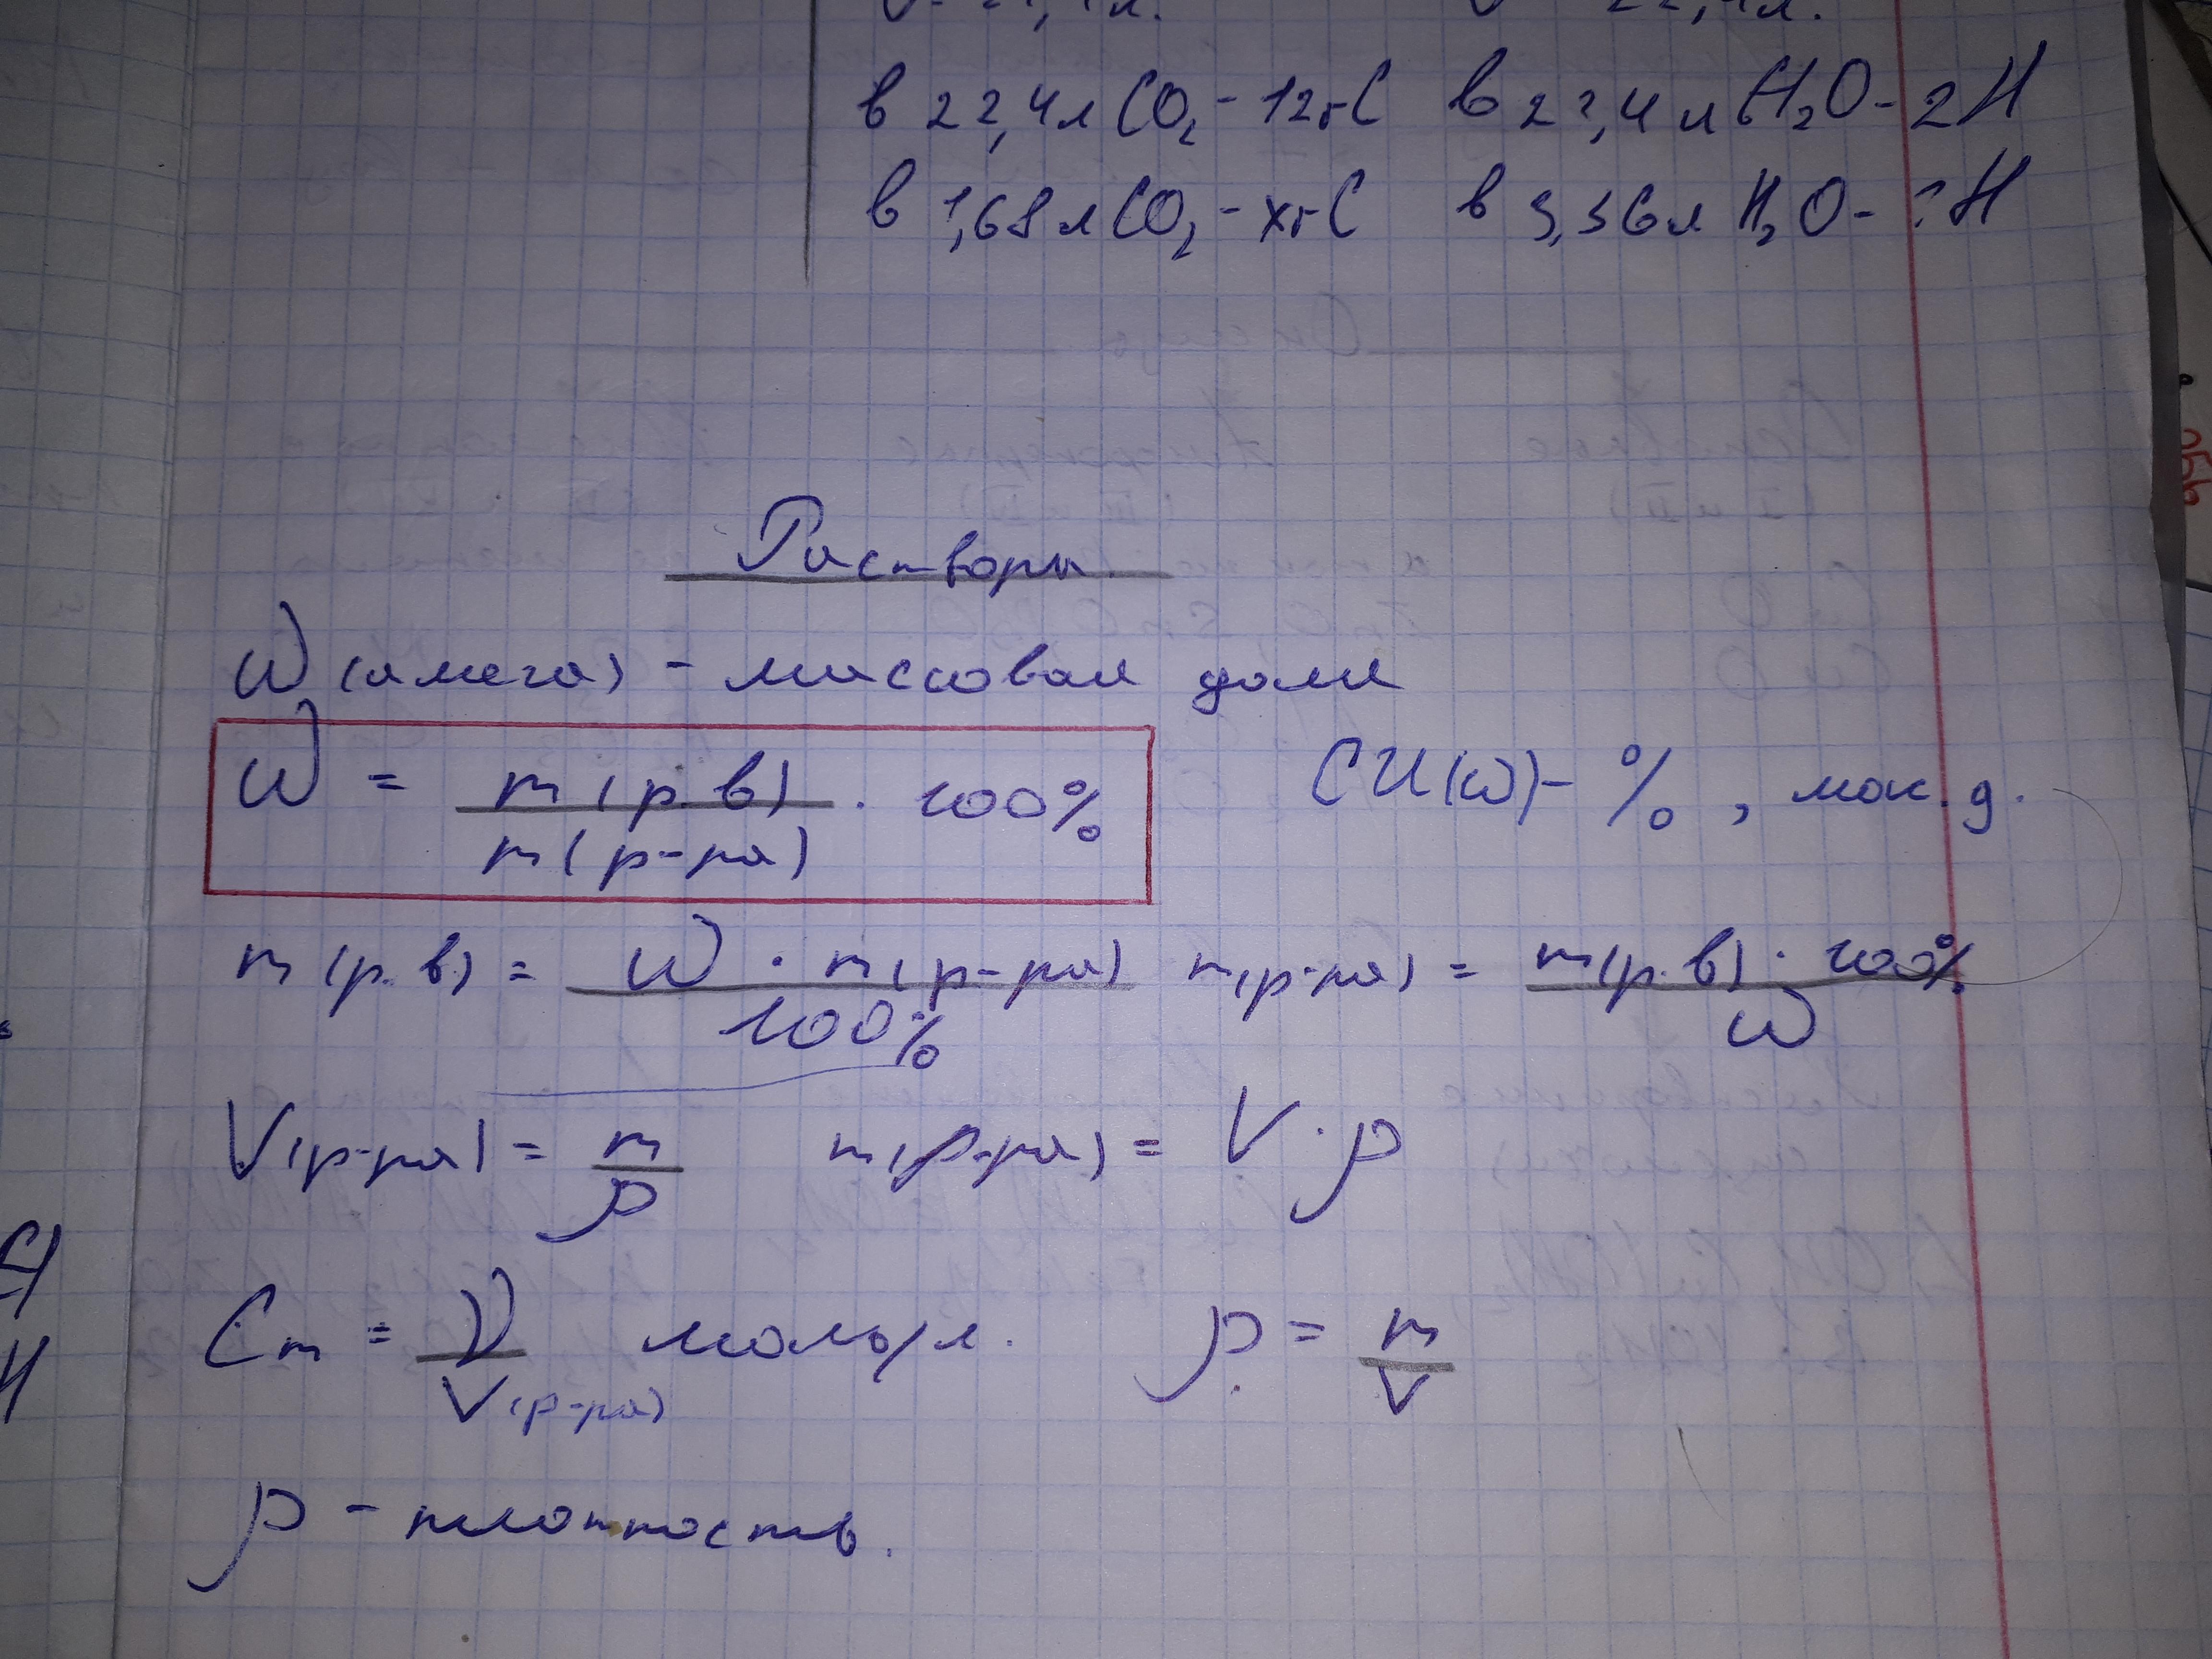 в 22,4л CO₂ - 12г C в 22,4л H₂O - 2H
в 1,68л CO₂ - xг C в 3,36л H₂O - ?H
Растворы
ω (омега) - массовая доля
ω = m(р.в) / m(р-ра) · 100% СИ(ω) - %,
m(р.в) = ω · m(р-ра) / 100% m(р-ра) = m(р.в) · 100% / ω
V(р-ра) = m / ρ m(р-ра) = V · ρ
Cm = ν / V(р-ра) моль/л. ρ = m / V
ρ - плотность.